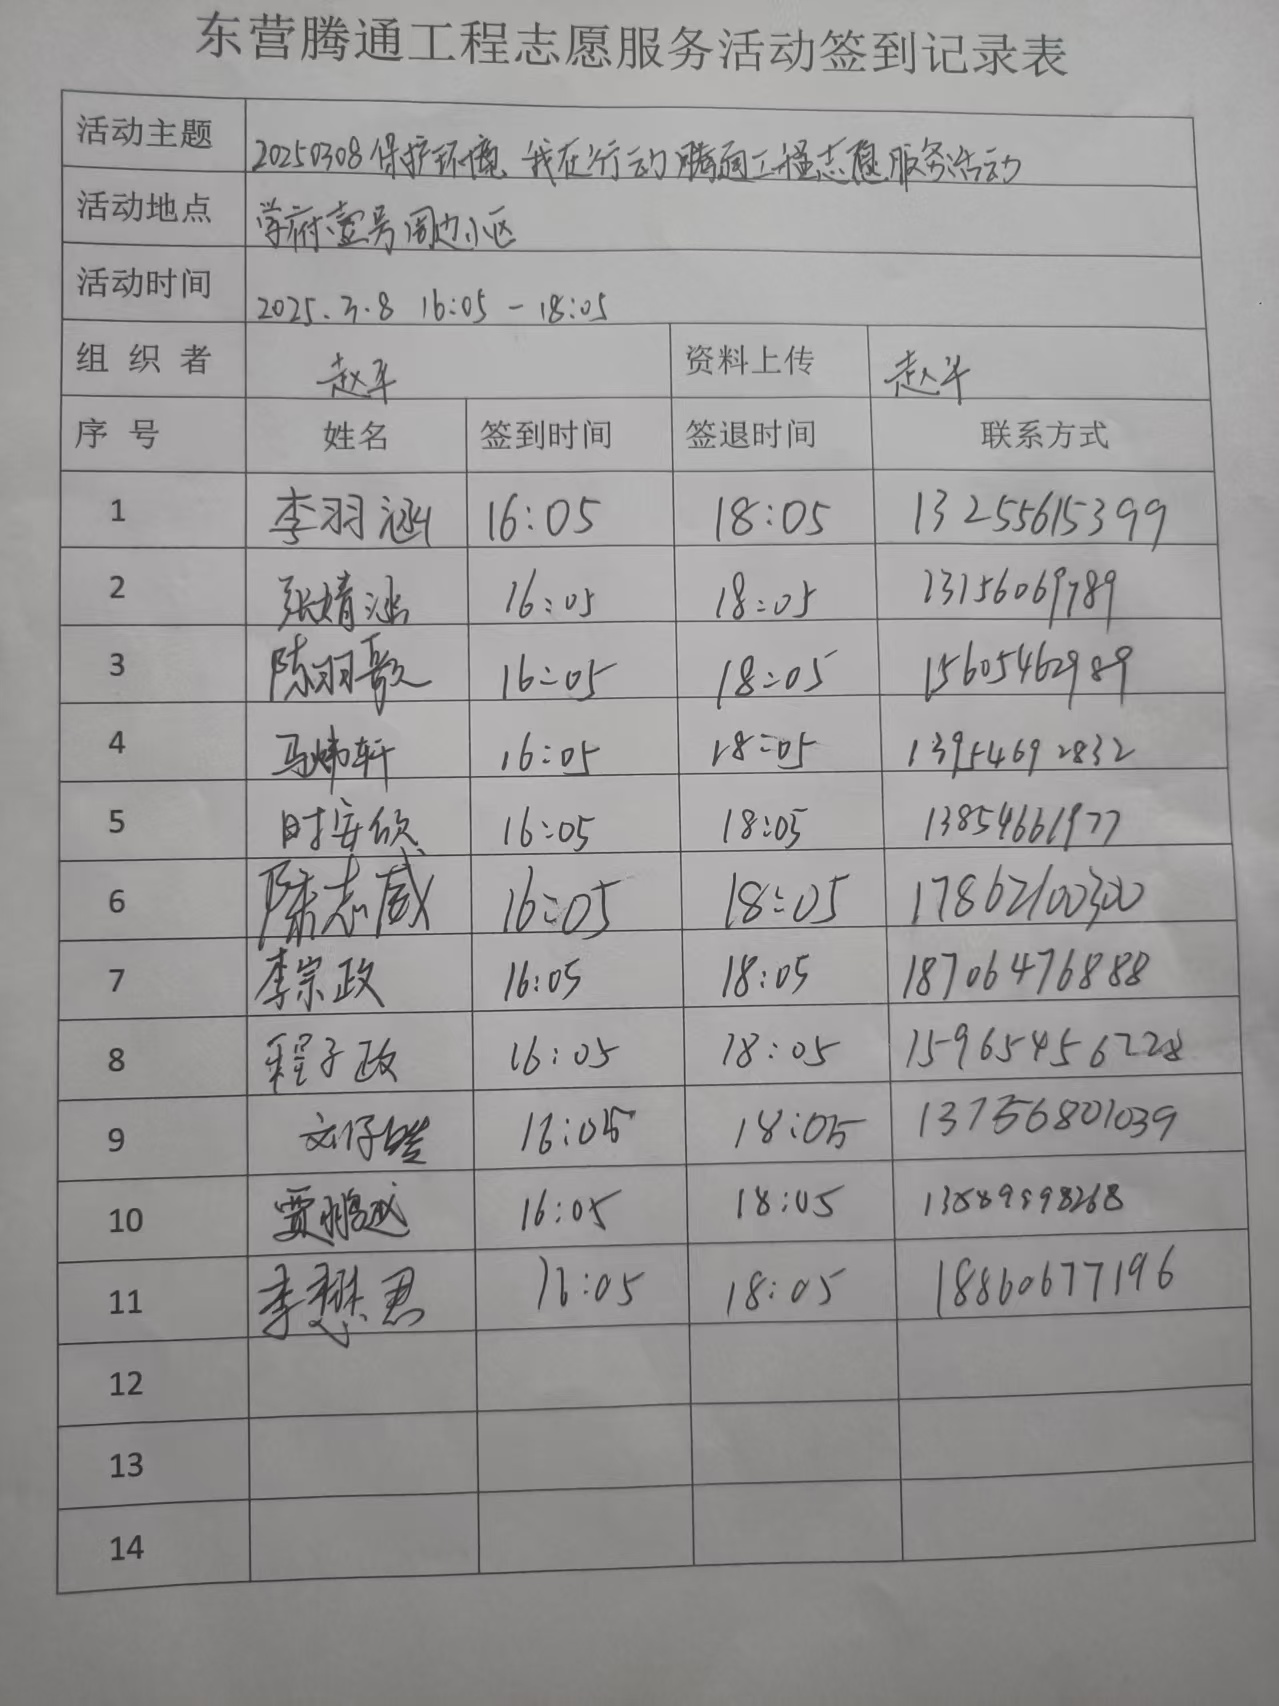 东营腾通工程志愿服务活动签到记录表
活动主题 20250308保护环境、我在行动腾通工程志愿服务活动
活动地点 学府壹号周边小区
活动时间 2025.3.8 16:05-18:05
组织者 赵军 资料上传 赵军
序号 姓名 签到时间 签退时间 联系方式
1 李羽涵 16:05 18:05 13255615399
2 张婧涵 16:05 18:05 13156069789
3 陈羽歌 16:05 18:05 15605462989
4 马炜轩 16:05 18:05 13954692832
5 时安欣 16:05 18:05 13854661977
6 陈志威 16:05 18:05 17862100300
7 李宗政 16:05 18:05 18706476888
8 程子政 16:05 18:05
9 16:05 18:05
10 贾鹏越 16:05 18:05
11 李懋君 16:05 18:05 18860677196
12
13
14